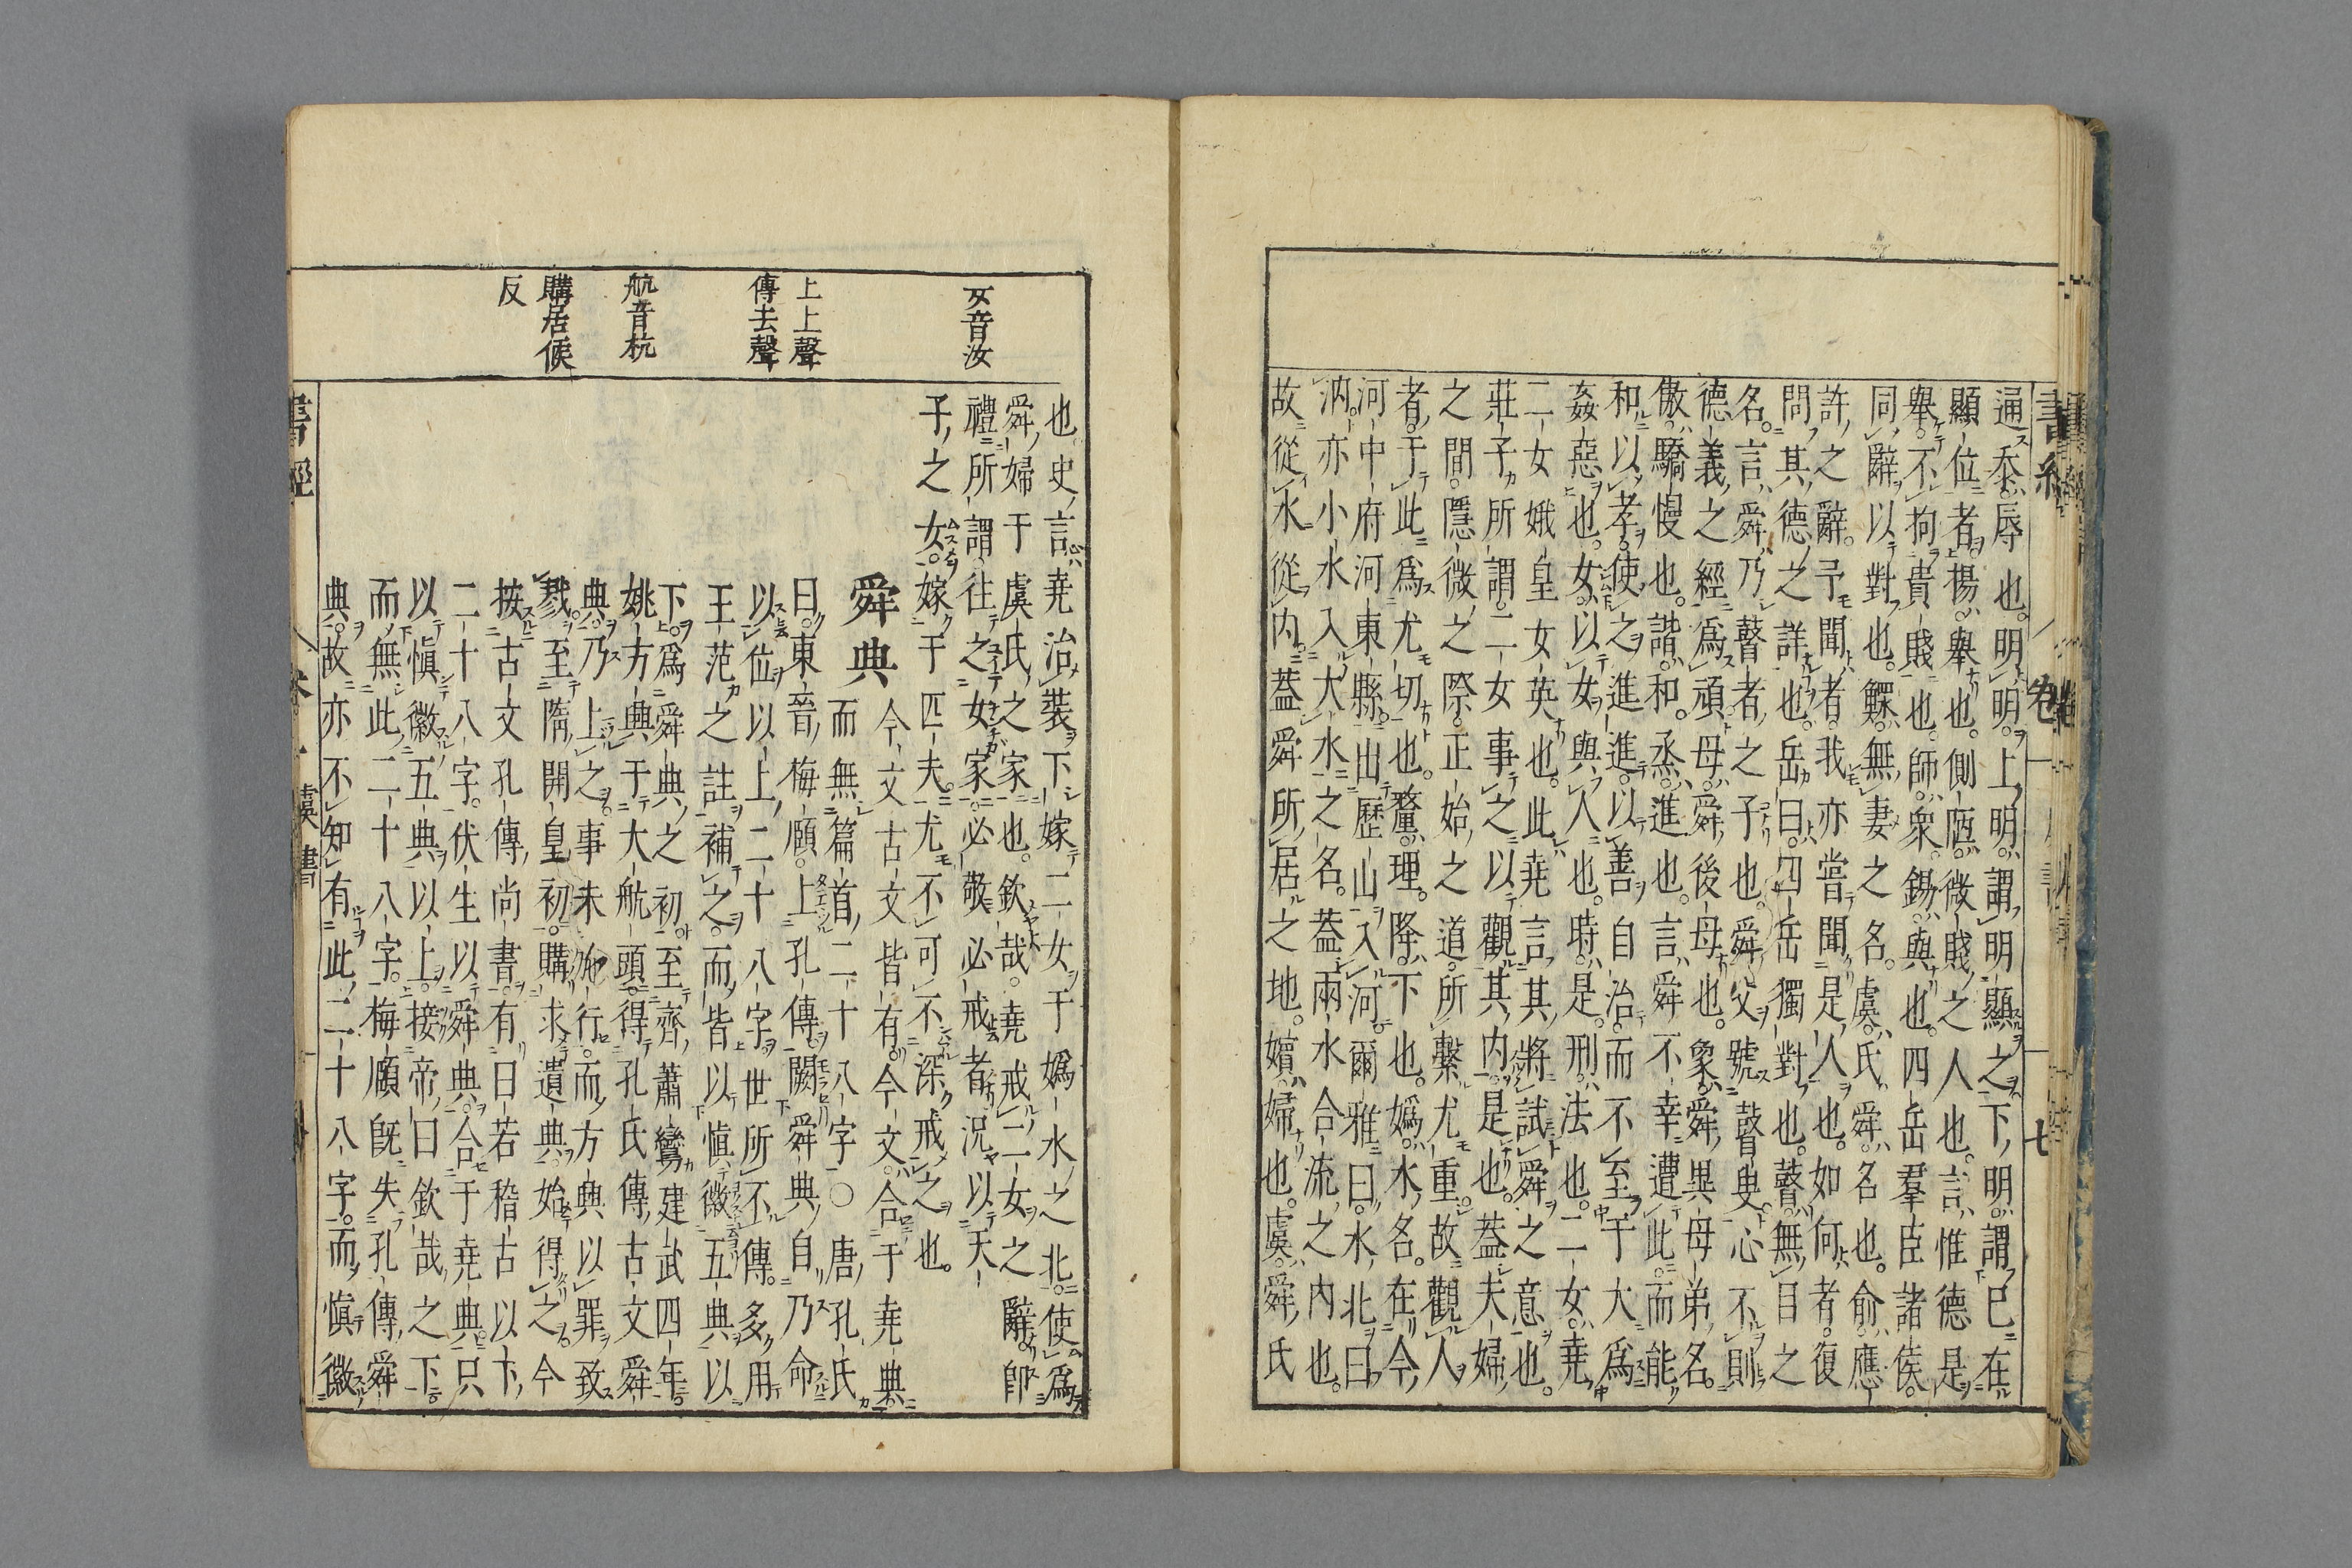 通忝辱也明明上明謂明顯之下明謂已在
顯位者揚擧也側陋微賤之人也言惟德是
擧不拘貴賤也師衆錫與也四岳群臣諸侯
同辭以對也鰥無妻之名虞氏舜名也俞應
許之辭予聞者我亦嘗聞是人也如何者復
問其德之詳也岳曰四岳獨對也瞽無目之
名言舜乃瞽者之子也舜父號瞽叟心不則
德義之經爲頑母舜後母也象舜異母弟名
傲驕慢也諧和烝進也言舜不幸遭此而能
和以孝使之進進以善自治而不至于大爲
姦惡也女以女與人也時是刑法也二女堯
二女娥皇女英也此堯言其將試舜之意也
莊子所謂二女事之以觀其內是也蓋夫婦
之間隱微之際正始之道所繫尤重故觀人
者于此爲尤切也釐理降下也嬀水名在今
河中府河東縣出歷山入河爾雅曰水北曰
汭亦小水入大水之名蓋兩水合流之內也
故從水從內蓋舜所居之地嬪婦也虞舜氏
書經
卷一
七
女音汝
上上聲
傳去聲
航音杭
購居候
反
也史言堯治裝下嫁二女于嬀水之北使爲
舜婦于虞氏之家也欽哉堯戒二女之辭卽
禮所謂往之女家必敬必戒者況以天
子之女嫁于匹夫尤不可不深戒之也
舜典
今文古文皆有今文合于堯典
而無篇首二十八字○唐孔氏
曰東晉梅頤上孔傳闕舜典自乃命
以位以上二十八字世所不傳多用
王范之註補之而皆以愼徽五典以
下爲舜典之初至齊蕭鸞建武四年
姚方興于大航頭得孔氏傳古文舜
典乃上之事未施行而方興以罪致
戮至隋開皇初購求遺典始得之今
按古文孔傳尚書有曰若稽古以下
二十八字伏生以舜典合于堯典只
以愼徽五典以上接帝曰欽哉之下
而無此二十八字梅頤旣失孔傳舜
典故亦不知有此二十八字而愼徽
書經
卷一
虞書